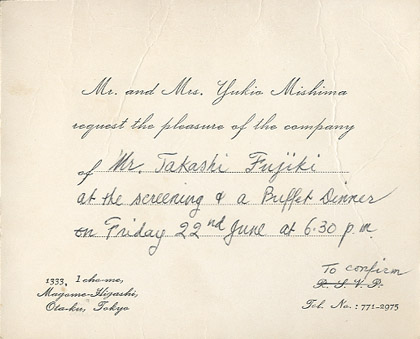 Mr. and Mrs. Yukio Mishima
request the pleasure of the company
of Mr. Takashi Fujiki
at the screening & a Buffet Dinner
on Friday 22nd June at 6.30 p.m.
To confirm
1333, 1 cho-me,
Magome-Higashi,
Ota-ku, Tokyo
R. S. V. P.
Tel. No.: 771-2975